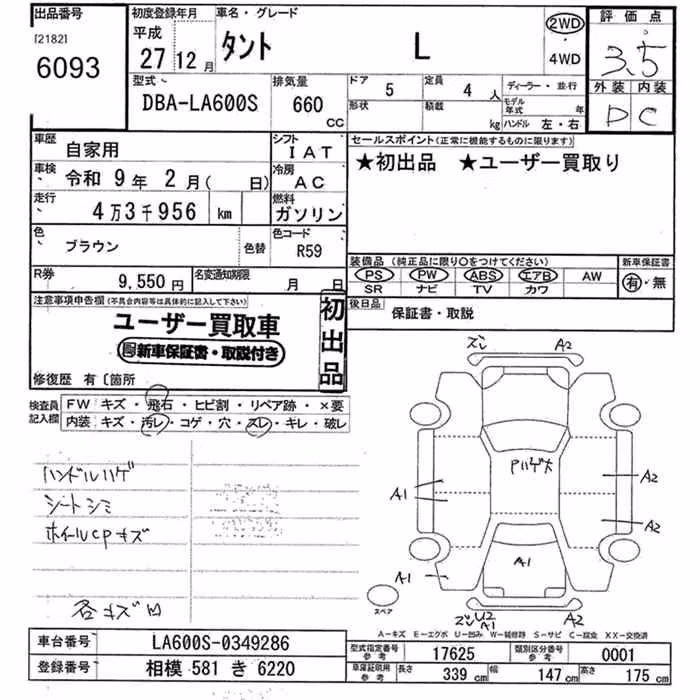 出品番号 初度登録年月 車名・グレード 2WD 評価点
[2182] 平成
6093 27 12月 タント L 4WD 3.5
型式 排気量 ドア 5 定員 4人 ディーラー・並行 外装 内装
DBA-LA600S 660 CC 形状 積載 kg モデル年式 年 D C
ハンドル 左・右
車歴 自家用 シフト IAT セールスポイント(正常に機能するものに限ります)
車検 令和 9年 2月( 日) 冷房 AC ★初出品 ★ユーザー買取り
走行 4万3千956 km 燃料 ガソリン
色 ブラウン 色替 色コード R59
装備品(純正品に限り○をつけてください) 新車保証書
R券 9,550円 名変通知期限 月 日 PS PW ABS エアB AW 有・無
SR ナビ TV カワ
注意事項申告欄(不具合内容等は具体的に記入して下さい) 初出品 後日品 保証書・取説
ユーザー買取車
新車保証書・取説付き
修復歴 有〔箇所
検査員記入欄 FW キズ・飛石・ヒビ割・リペア跡・×要
内装 キズ・汚レ・コゲ・穴・スレ・キレ・破レ
ズレ A2
ハンドルハゲ
シートシミ
ホイールCPキズ
Pハゲ大
A1 A2
A2
A1
A1
各キズ凹
スペア
ズレ U2 A1 A2
A-キズ E-エクボ U-凹み W-補修跡 S-サビ C-腐食 XX-交換済
車台番号 LA600S-0349286 型式指定番号 参考 17625 類別区分番号 参考 0001
登録番号 相模 581 き 6220 車庫証明用 参考 長さ 339cm 幅 147cm 高さ 175cm